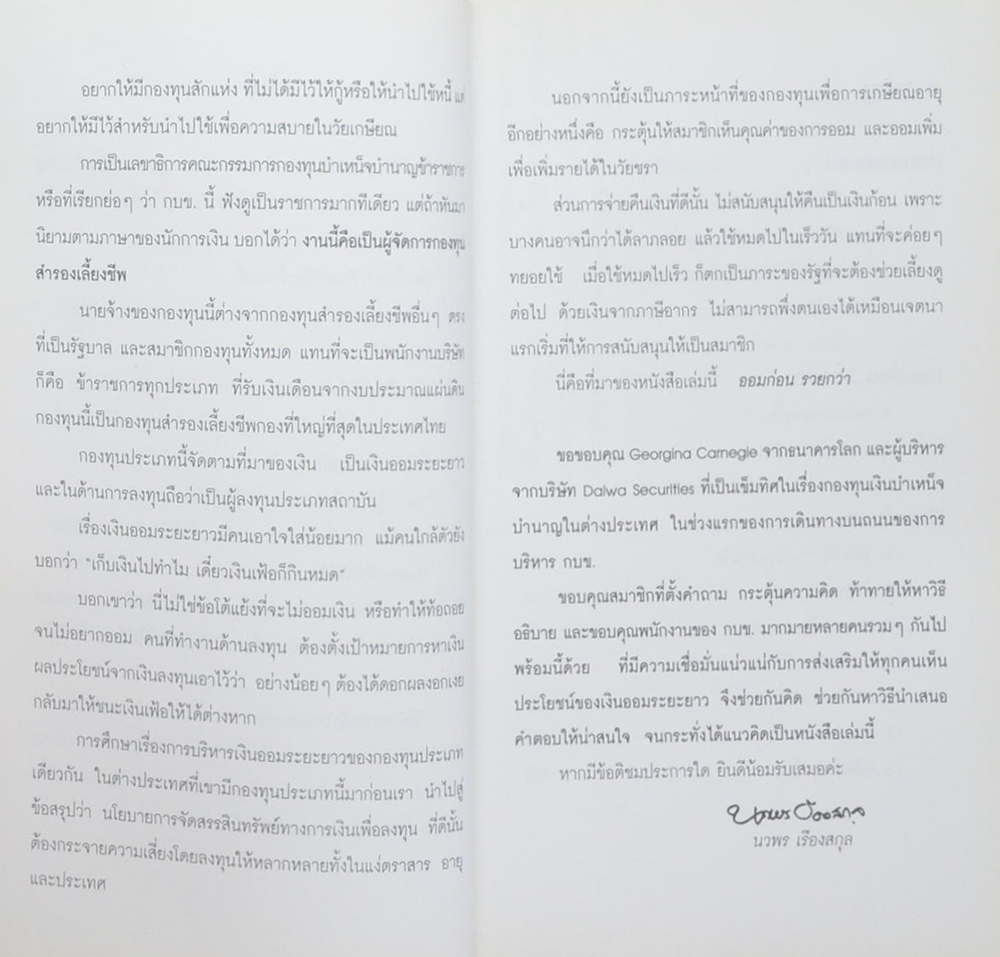 อยากให้มีกองทุนสักแห่ง ที่ไม่ได้มีไว้ให้กู้หรือให้นำไปใช้หนี้ แต่
อยากให้มีไว้สำหรับนำไปใช้เพื่อความสบายในวัยเกษียณ
การเป็นเลขาธิการคณะกรรมการกองทุนบำเหน็จบำนาญข้าราชการ
หรือที่เรียกย่อๆ ว่า กบข. นี้ ฟังดูเป็นราชการมากทีเดียว แต่ถ้าหันมา
นิยามตามภาษาของนักการเงิน บอกได้ว่า งานนี้คือเป็นผู้จัดการกองทุน
สำรองเลี้ยงชีพ
นายจ้างของกองทุนนี้ต่างจากกองทุนสำรองเลี้ยงชีพอื่นๆ ตรง
ที่เป็นรัฐบาล และสมาชิกกองทุนทั้งหมด แทนที่จะเป็นพนักงานบริษัท
ก็คือ ข้าราชการทุกประเภท ที่รับเงินเดือนจากงบประมาณแผ่นดิน
กองทุนนี้เป็นกองทุนสำรองเลี้ยงชีพกองที่ใหญ่ที่สุดในประเทศไทย
กองทุนประเภทนี้จัดตามที่มาของเงิน เป็นเงินออมระยะยาว
และในด้านการลงทุนถือว่าเป็นผู้ลงทุนประเภทสถาบัน
เรื่องเงินออมระยะยาวมีคนเอาใจใส่น้อยมาก แม้คนใกล้ตัวยัง
บอกว่า "เก็บเงินไปทำไม เดี๋ยวเงินเฟ้อก็กินหมด"
บอกเขาว่า นี่ไม่ใช่ข้อโต้แย้งที่จะไม่ออมเงิน หรือทำให้ท้อถอย
จนไม่อยากออม คนที่ทำงานด้านลงทุน ต้องตั้งเป้าหมายการหาเงิน
ผลประโยชน์จากเงินลงทุนเอาไว้ว่า อย่างน้อยๆ ต้องได้ดอกผลงอกเงย
กลับมาให้ชนะเงินเฟ้อให้ได้ต่างหาก
การศึกษาเรื่องการบริหารเงินออมระยะยาวของกองทุนประเภท
เดียวกัน ในต่างประเทศที่เขามีกองทุนประเภทนี้มาก่อนเรา นำไปสู่
ข้อสรุปว่า นโยบายการจัดสรรสินทรัพย์ทางการเงินเพื่อลงทุน ที่ดีนั้น
ต้องกระจายความเสี่ยงโดยลงทุนให้หลากหลายทั้งในแง่ตราสาร อายุ
และประเทศ
นอกจากนี้ยังเป็นภาระหน้าที่ของกองทุนเพื่อการเกษียณอายุ
อีกอย่างหนึ่งคือ กระตุ้นให้สมาชิกเห็นคุณค่าของการออม และออมเพิ่ม
เพื่อเพิ่มรายได้ในวัยชรา
ส่วนการจ่ายคืนเงินที่ดีนั้น ไม่สนับสนุนให้คืนเป็นเงินก้อน เพราะ
บางคนอาจนึกว่าได้ลาภลอย แล้วใช้หมดไปในเร็ววัน แทนที่จะค่อยๆ
ทยอยใช้ เมื่อใช้หมดไปเร็ว ก็ตกเป็นภาระของรัฐที่จะต้องช่วยเลี้ยงดู
ต่อไป ด้วยเงินจากภาษีอากร ไม่สามารถพึ่งตนเองได้เหมือนเจตนา
แรกเริ่มที่ให้การสนับสนุนให้เป็นสมาชิก
นี่คือที่มาของหนังสือเล่มนี้ ออมก่อน รวยกว่า
ขอขอบคุณ Georgina Carnegie จากธนาคารโลก และผู้บริหาร
จากบริษัท Daiwa Securities ที่เป็นเข็มทิศในเรื่องกองทุนเงินบำเหน็จ
บำนาญในต่างประเทศ ในช่วงแรกของการเดินทางบนถนนของการ
บริหาร กบข.
ขอบคุณสมาชิกที่ตั้งคำถาม กระตุ้นความคิด ท้าทายให้หาวิธี
อธิบาย และขอบคุณพนักงานของ กบข. มากมายหลายคนรวมๆ กันไป
พร้อมนี้ด้วย ที่มีความเชื่อมั่นแน่วแน่กับการส่งเสริมให้ทุกคนเห็น
ประโยชน์ของเงินออมระยะยาว จึงช่วยกันคิด ช่วยกันหาวิธีนำเสนอ
คำตอบให้น่าสนใจ จนกระทั่งได้แนวคิดเป็นหนังสือเล่มนี้
หากมีข้อติชมประการใด ยินดีน้อมรับเสมอค่ะ
นวพร เรืองสกุล
นวพร เรืองสกุล